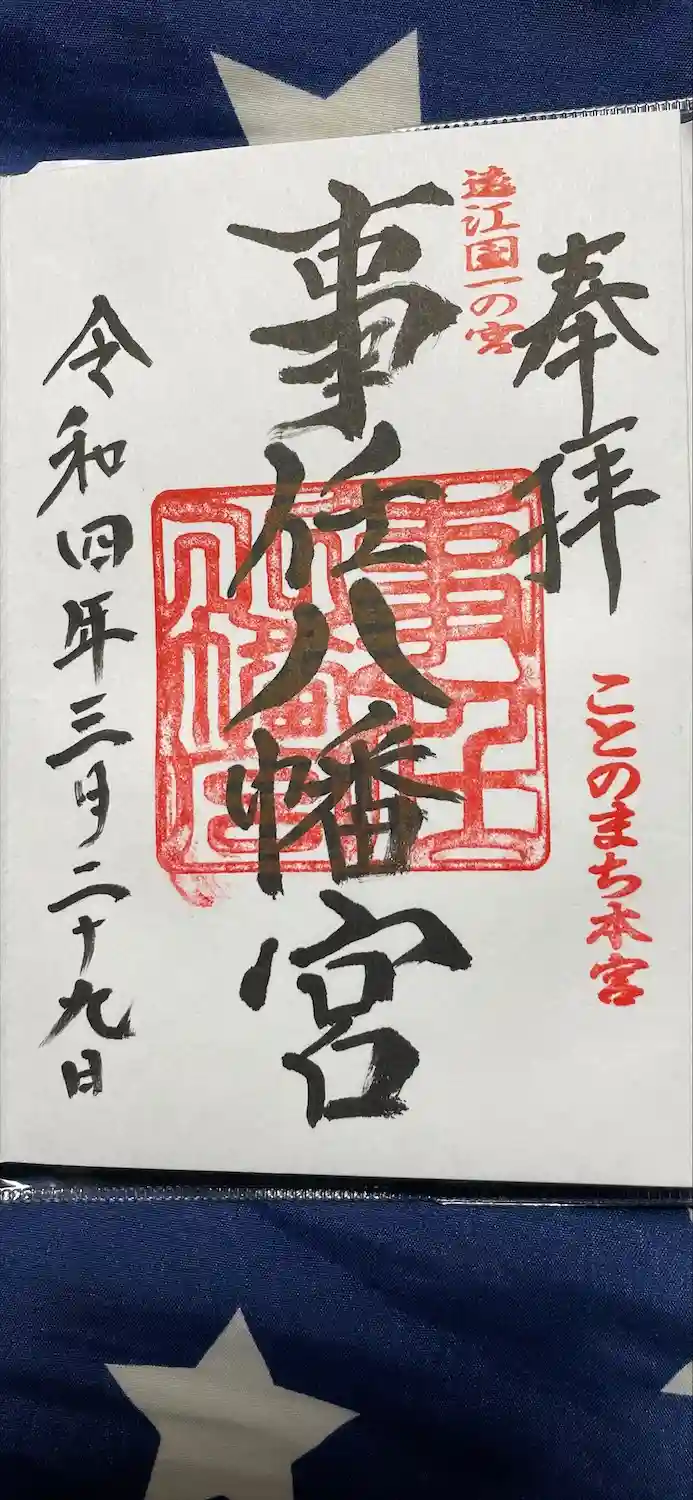 奉拝
遠江国一の宮
ことのまち本宮
事任八幡宮
令和四年三月二十九日